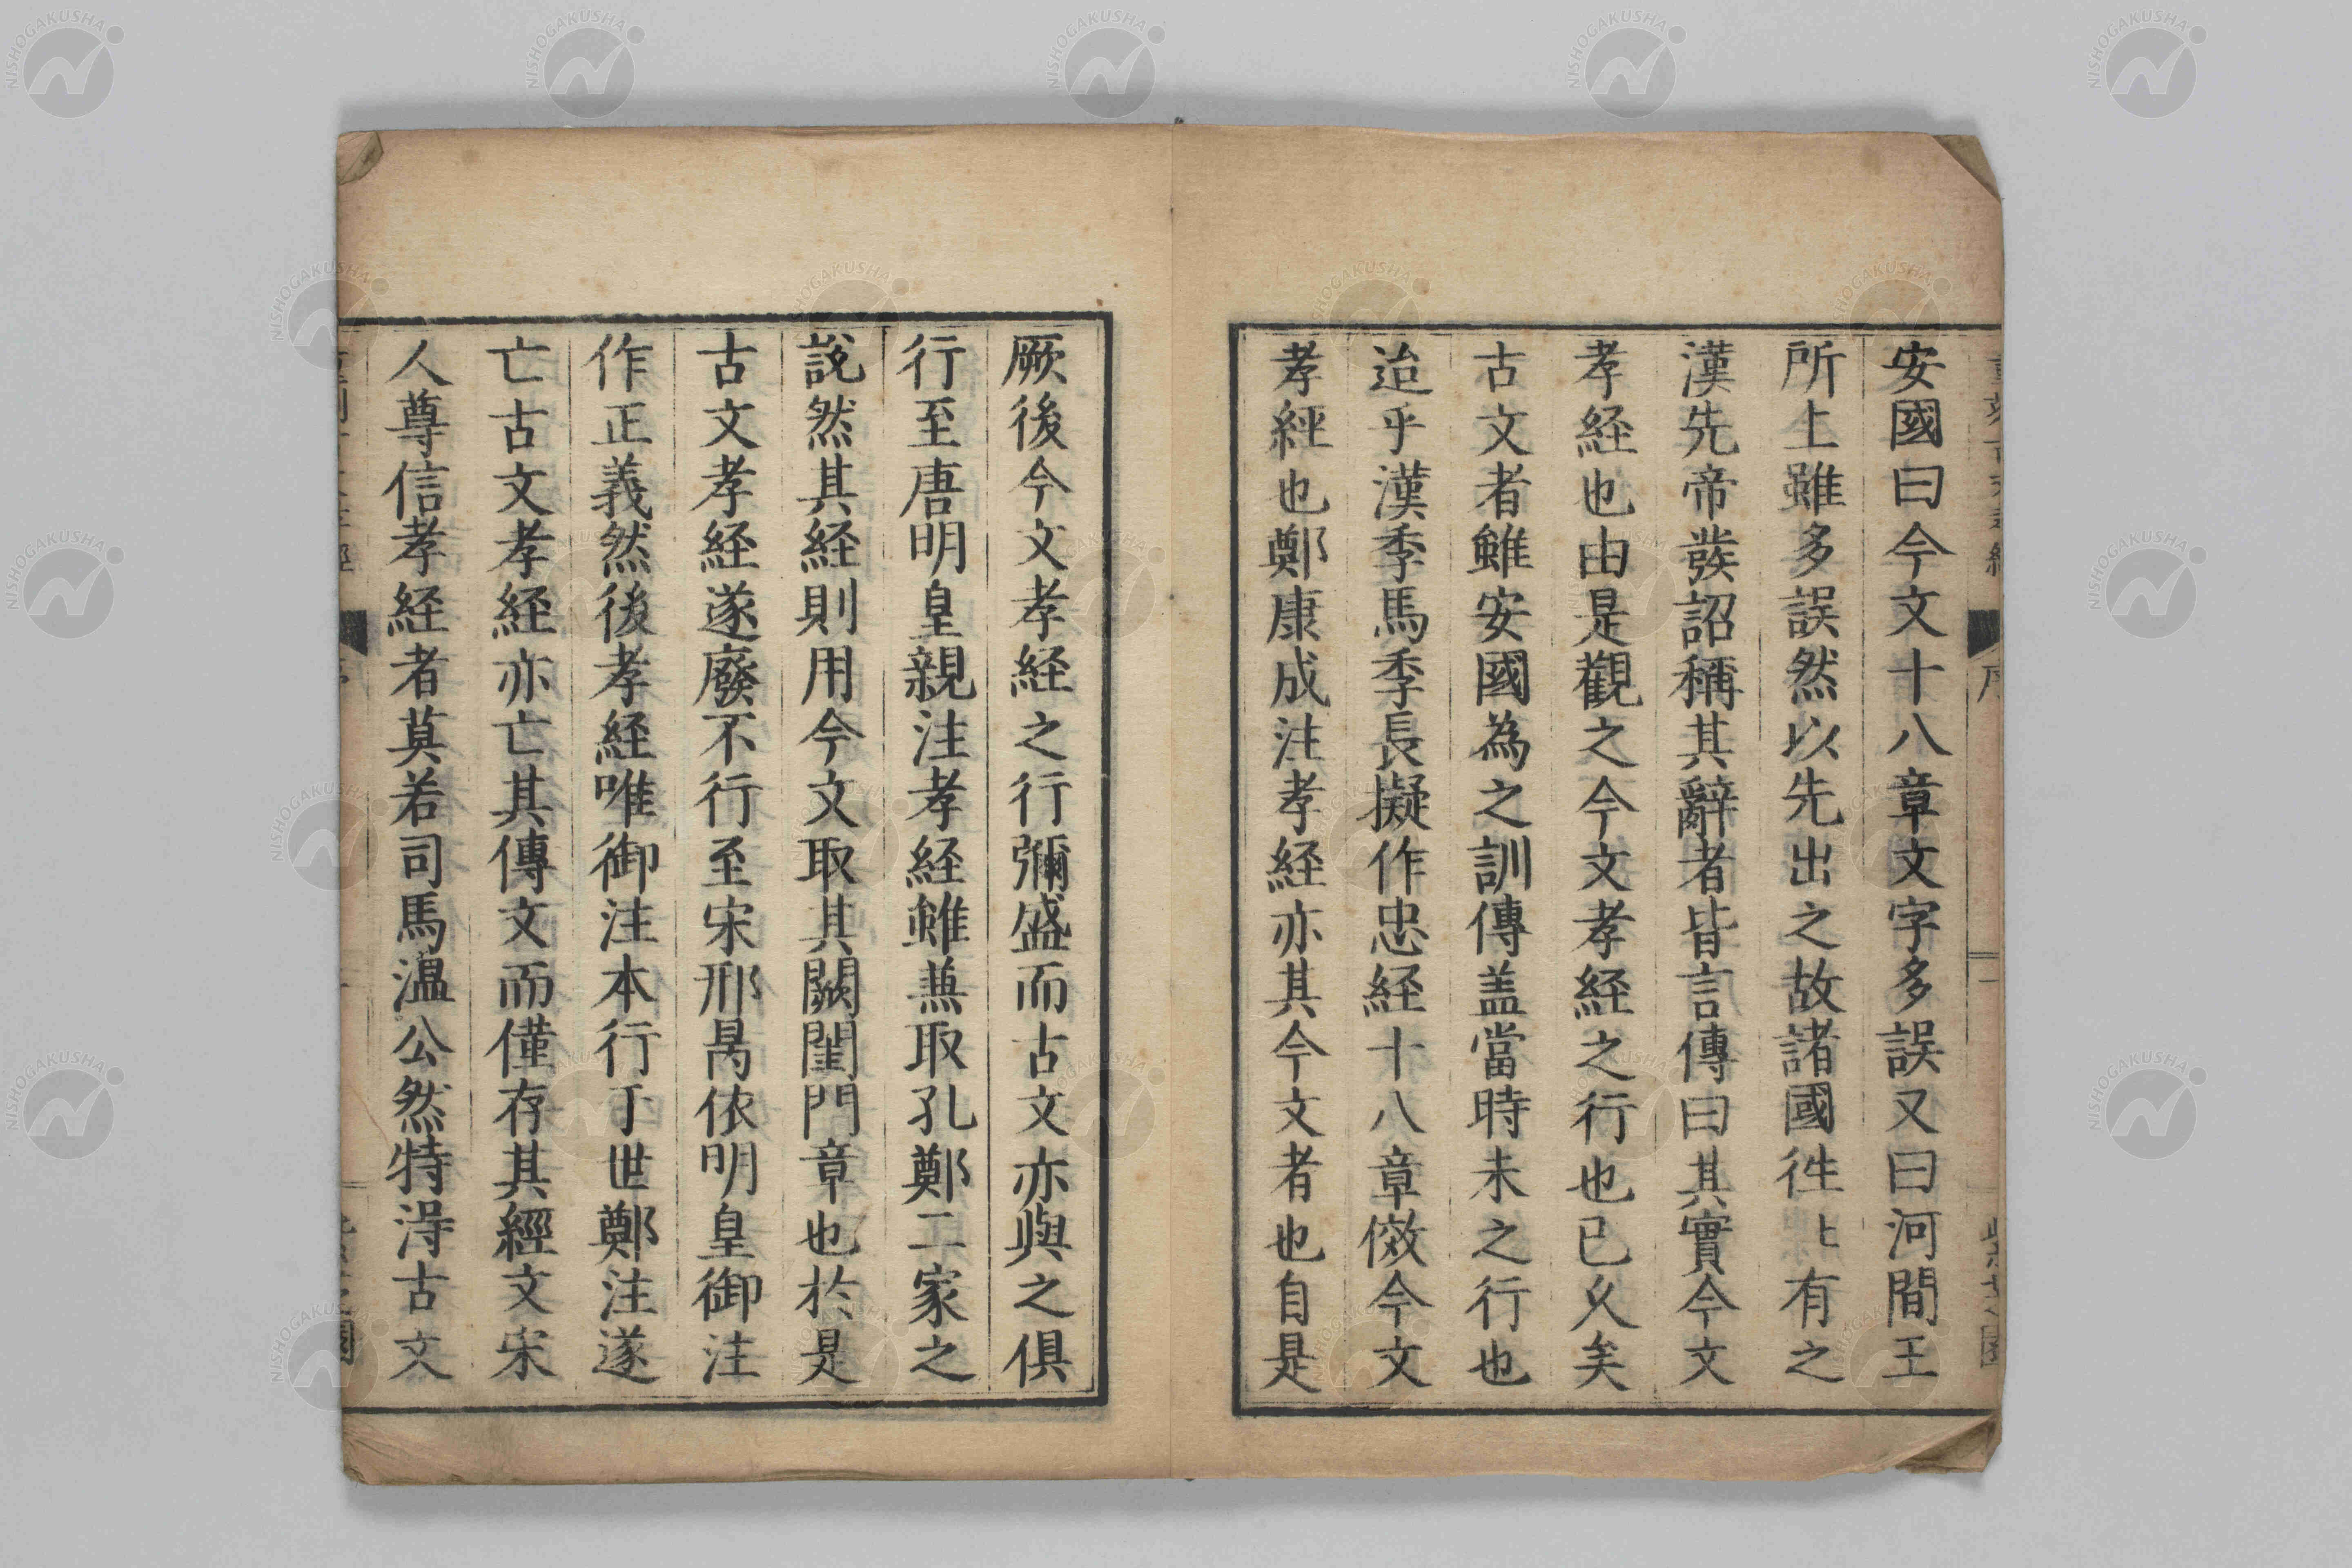 安國曰今文十八章文字多誤又曰河間王
所上雖多誤然以先出之故諸國徃〻有之
漢先帝發詔稱其辭者皆言傳曰其實今文
孝経也由是觀之今文孝経之行也已乆矣
古文者雖安國為之訓傳盖當時未之行也
迨乎漢季馬季長擬作忠経十八章傚今文
孝經也鄭康成注孝経亦其今文者也自是
厥後今文孝経之行彌盛而古文亦與之俱
行至唐明皇親注孝経雖兼取孔鄭二家之
說然其経則用今文取其闕閨門章也於是
古文孝経遂廢不行至宋邢昺依明皇御注
作正義然後孝経唯御注本行于世鄭注遂
亡古文孝経亦亡其傳文而僅存其經文宋
人尊信孝経者莫若司馬溫公然特淂古文
序
NISHOGAKUSHA